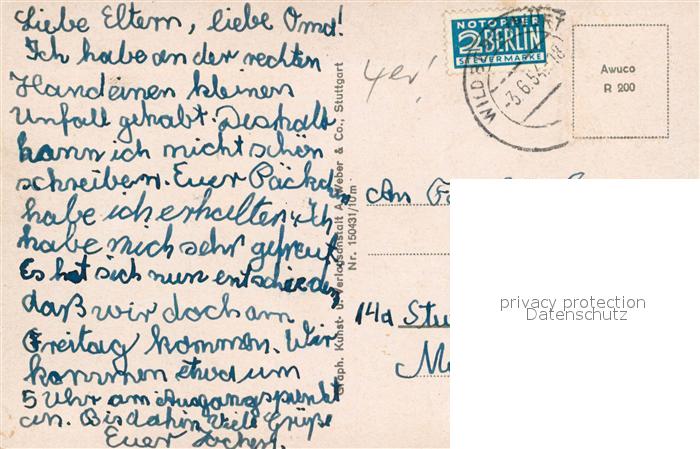 Liebe Eltern, liebe Oma!
Ich habe an der rechten
Hand einen kleinen
Unfall gehabt. Deshalb
kann ich nicht schön
schreiben. Euer Päckchen
habe ich erhalten. Ich
habe mich sehr gefreut.
Es hat sich nun entschieden,
daß wir doch am
Freitag kommen. Wir
kommen etwa um
5 Uhr am Ausgangspunkt
an. Bis dahin Viele Grüße
Euer Jochen.
Graph. Kunst- u. Verlagsanstalt A. Weber & Co., Stuttgart
Nr. 150431/10 m
NOTOPFER
2 BERLIN
STEUERMARKE
WILDB
-3.6.54.-18
Awuco
R 200
4er!
An
14a Stu
privacy protection
Datenschutz